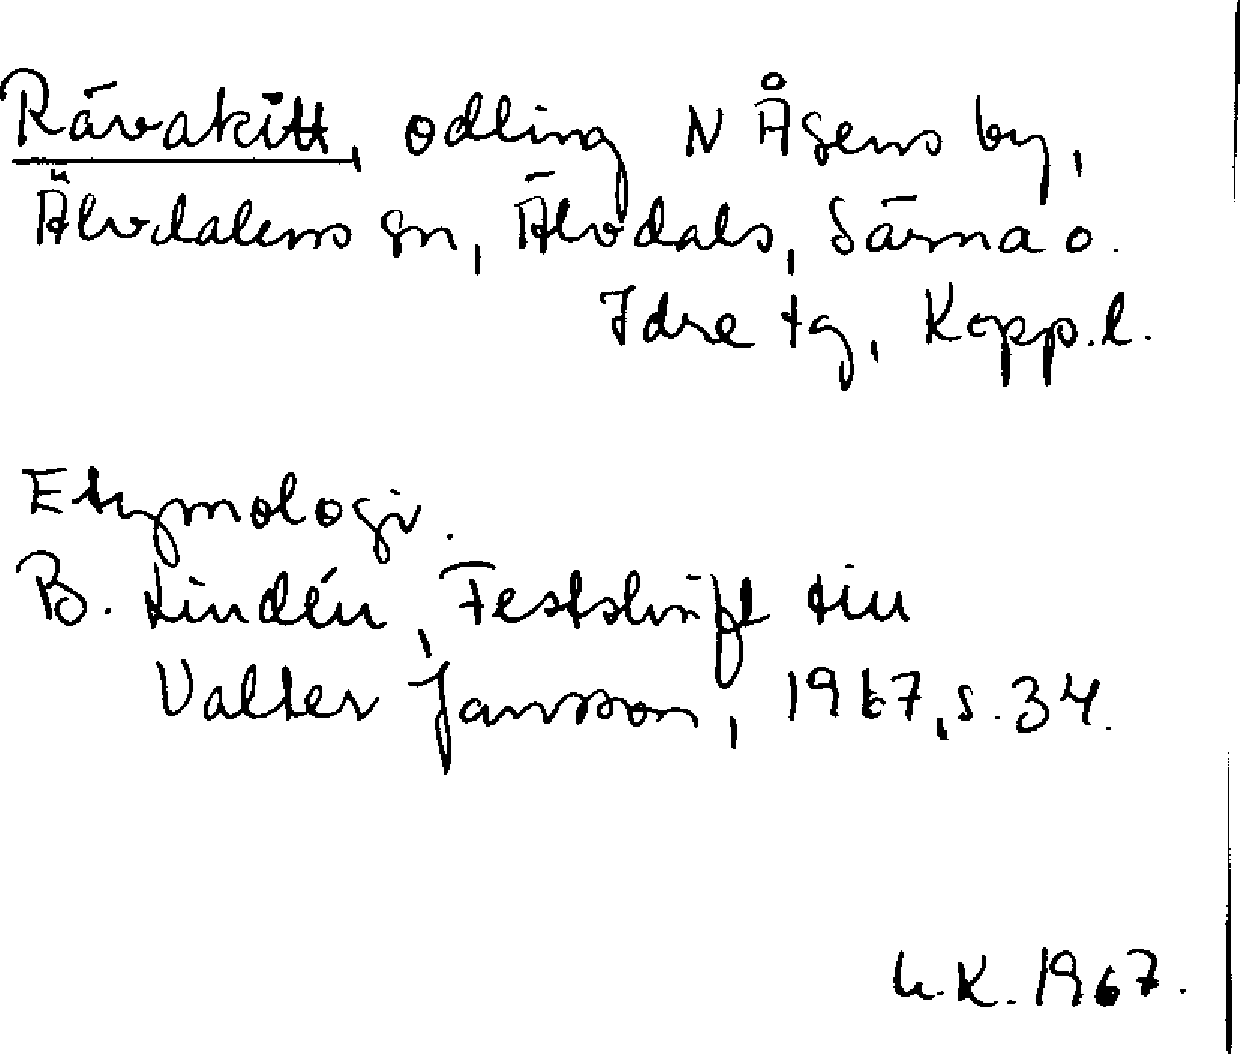 Rävakitt, odling N Åsens by,
Älvdalens sn, Älvdals, Särna o.
Idre tg, Kopp.l.
Etymologi.
B. Lindén, Festskrift till
Valter Jansson, 1967, s. 34.
L.K. 1967.